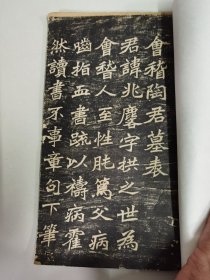 會稽陶君墓表
君諱兆麐字拱之世為
會稽人至性肫篤父病
嚙指血書疏以禱病霍
然讀書不事章句下筆